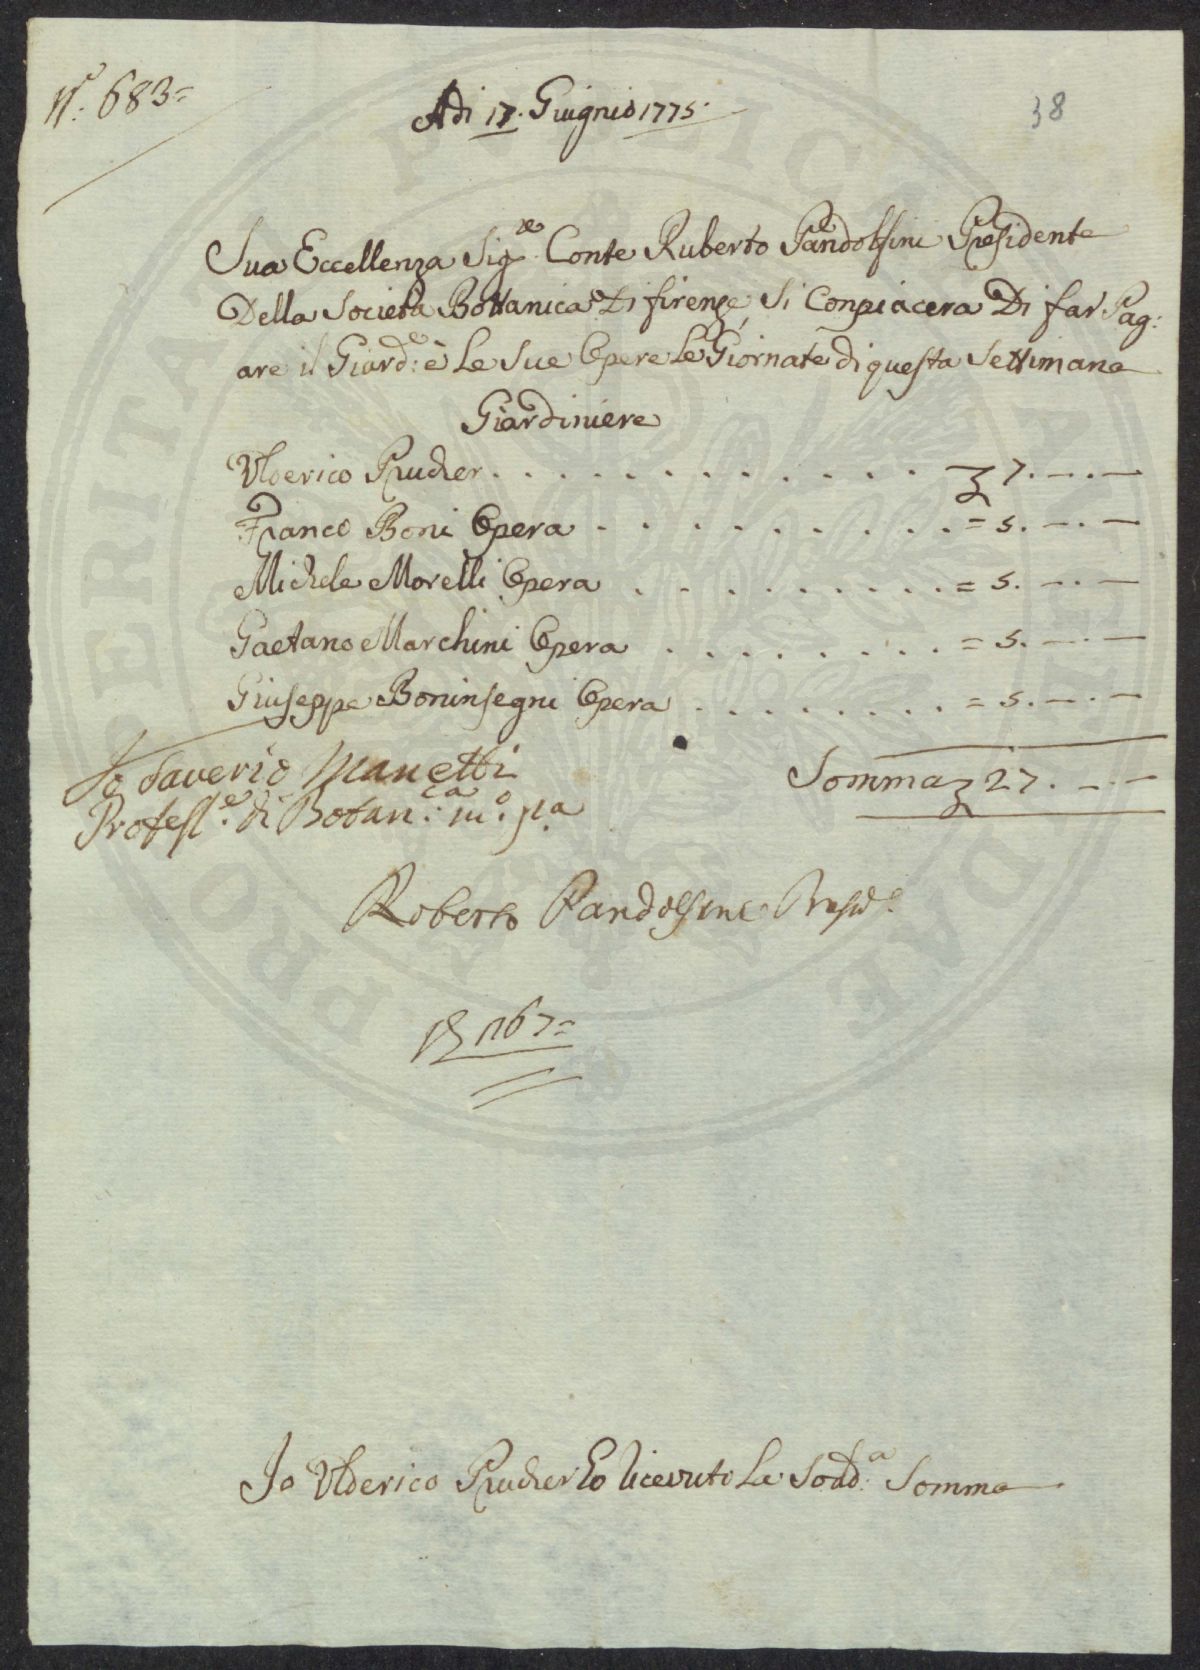 N.º 683=
Adi 17. Giugnio 1775.
38
Sua Eccellenza Sig.re Conte Ruberto Pandolfini Presidente
Della Società Bottanica Di firenze, Si Conpiacera Di far Pag:
are il Giard:e è Le Sue Opere Le Giornate di questa Settimana
Giardiniere
Vlderico Prucker . . . . . . . . . . . . 7. — . —
Franco Boni Opera . . . . . . . . . = 5. — . —
Michele Morelli Opera . . . . . . . . . = 5. — . —
Gaetano Marchini Opera . . . . . . . . = 5. — . —
Giuseppe Boninsegni Opera . . . . . . . . = 5. — . —
Somma 27. — . —
Io Saverio Manetti
Profess.e di Botan:ca m.o p.a
Roberto Pandolfini Presid.e
1167=
Io Vlderico Prucker ho Ricevuto La Sodd.a Somma
PRO PERITATI PVBLICAE AVGENDAE